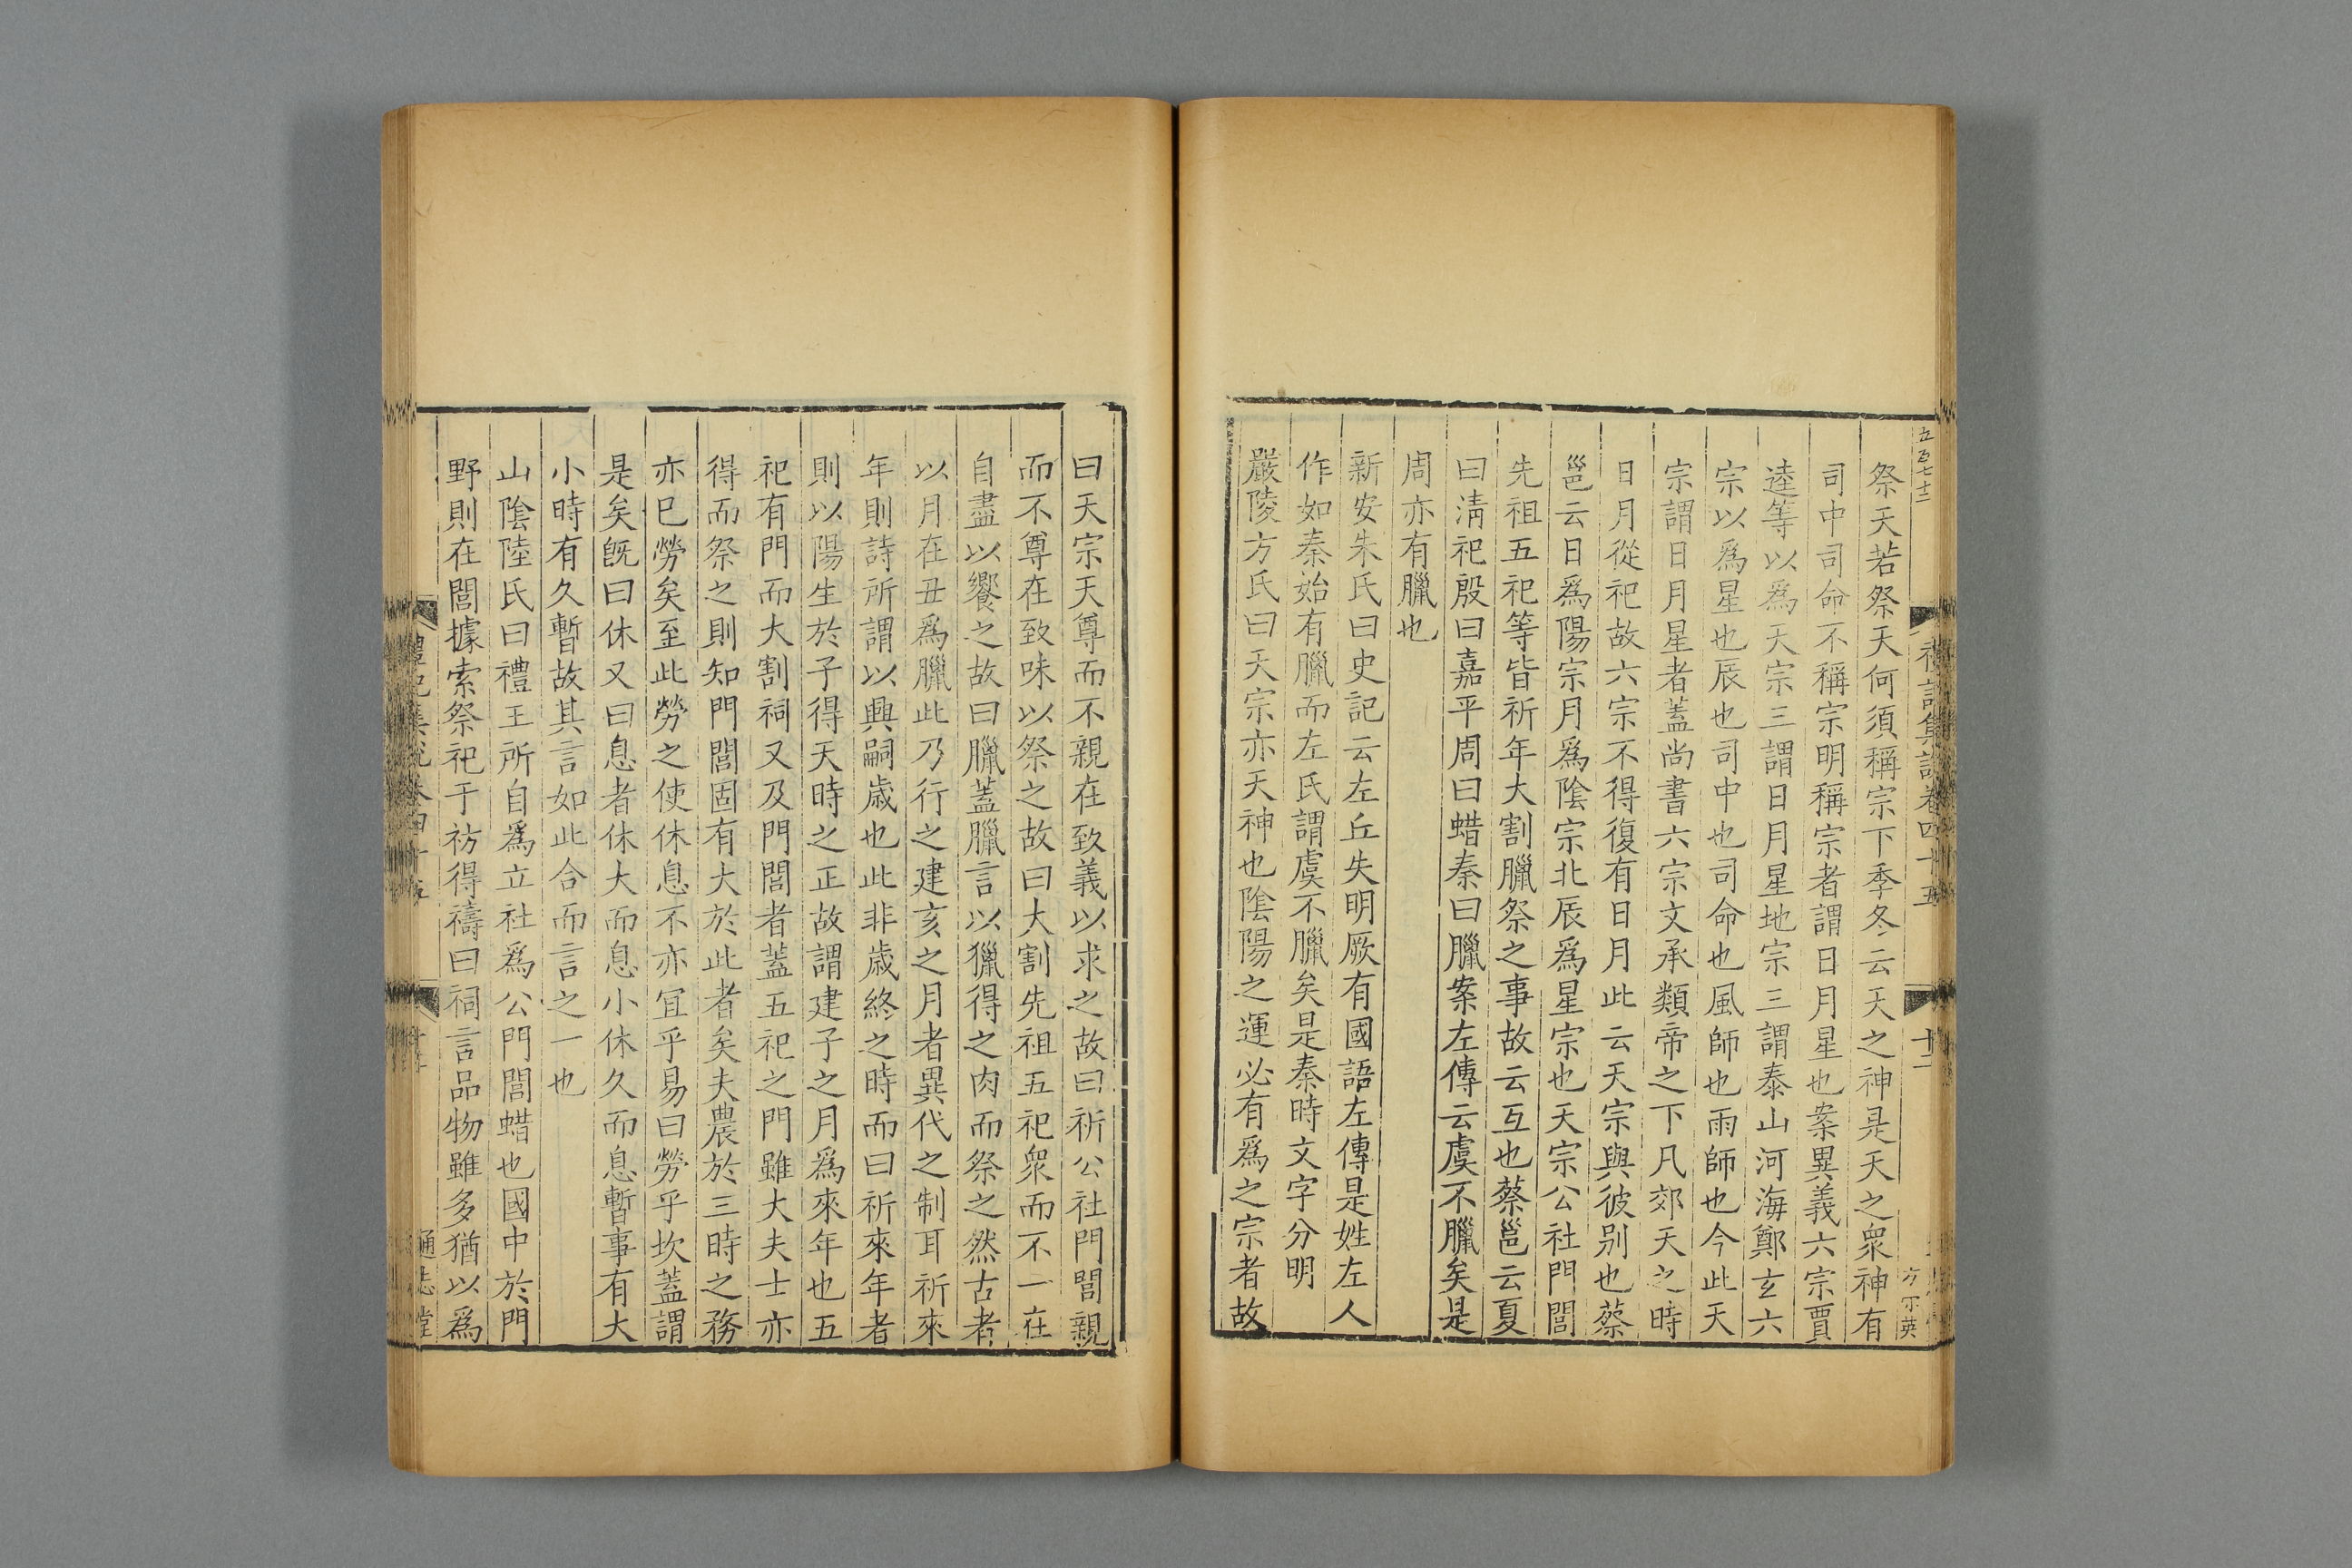 五百七十二
禮記集說卷四十五
十二
方丕英
祭天若祭天何須稱宗下季冬云天之神是天之衆神有
司中司命不稱宗明稱宗者謂日月星也案異義六宗賈
逵等以爲天宗三謂日月星地宗三謂泰山河海鄭玄六
宗以爲星也辰也司中也司命也風師也雨師也今此天
宗謂日月星者蓋尚書六宗文承類帝之下凡郊天之時
日月從祀故六宗不得復有日月此云天宗與彼别也蔡
邕云日爲陽宗月爲陰宗北辰爲星宗也天宗公社門閭
先祖五祀等皆祈年大割臘祭之事故云互也蔡邕云夏
曰淸祀殷曰嘉平周曰蜡秦曰臘案左傳云虞不臘矣是
周亦有臘也
新安朱氏曰史記云左丘失明厥有國語左傳是姓左人
作如秦始有臘而左氏謂虞不臘矣是秦時文字分明
嚴陵方氏曰天宗亦天神也陰陽之運必有爲之宗者故
曰天宗天尊而不親在致義以求之故曰祈公社門閭親
而不尊在致味以祭之故曰大割先祖五祀衆而不一在
自盡以饗之故曰臘蓋臘言以獵得之肉而祭之然古者
以月在丑爲臘此乃行之建亥之月者異代之制耳祈來
年則詩所謂以興嗣歲也此非歲終之時而曰祈來年者
則以陽生於子得天時之正故謂建子之月爲來年也五
祀有門而大割祠又及門閭者蓋五祀之門雖大夫士亦
得而祭之則知門閭固有大於此者矣夫農於三時之務
亦已勞矣至此勞之使休息不亦宜乎易曰勞乎坎蓋謂
是矣旣曰休又曰息者休大而息小休久而息暫事有大
小時有久暫故其言如此合而言之一也
山陰陸氏曰禮王所自爲立社爲公門閭蜡也國中於門
野則在閭據索祭祀于祊得禱曰祠言品物雖多猶以爲
禮記集說卷四十五
通志堂